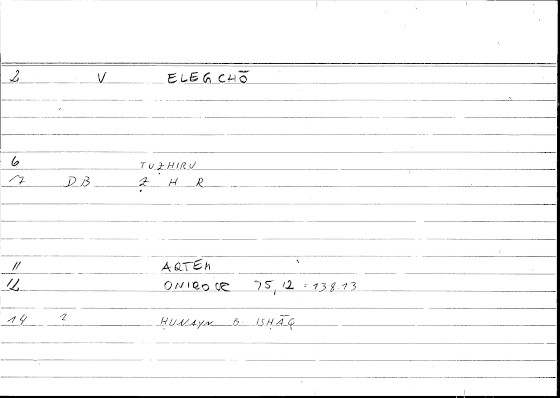 2 V ELEGCHŌ
6 TUẒHIRU
17 DB Ẓ H R
11 ARTEM
12 ONIROCR 75,12 = 138.13
14 2 ḤUNAYN B ISḤĀQ